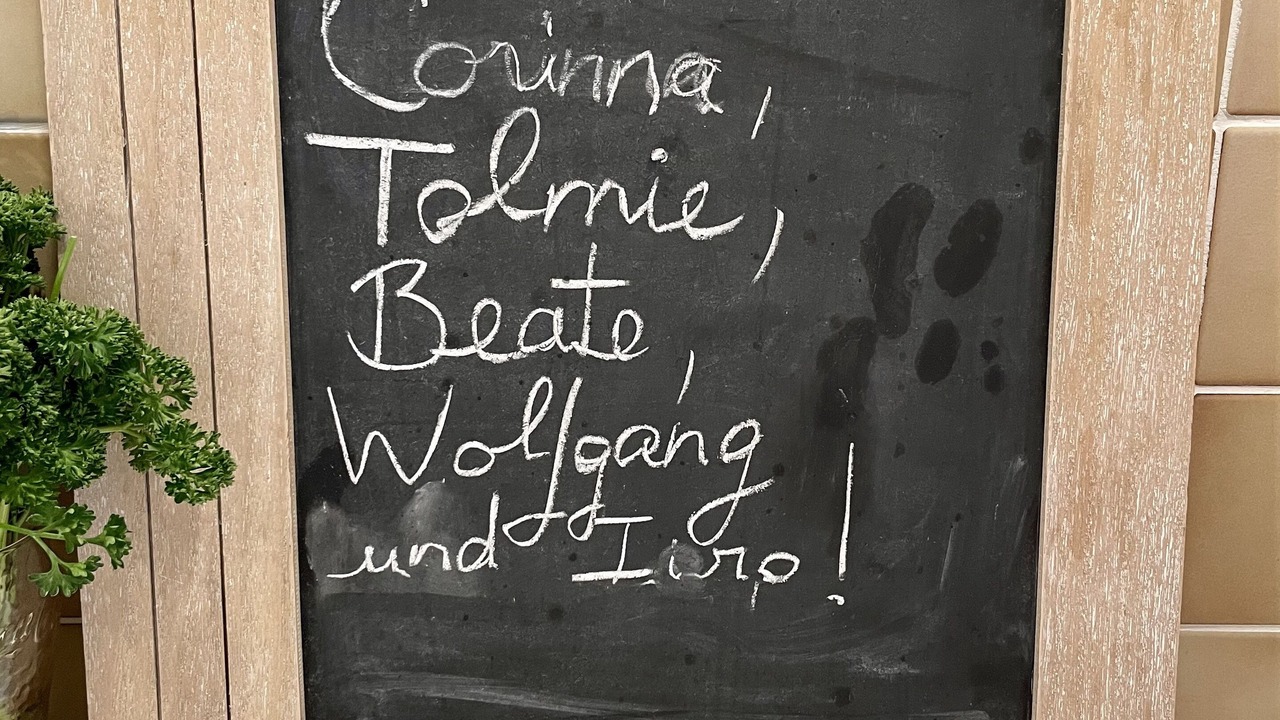 Corinna,
Tolmie,
Beate,
Wolfgang
und